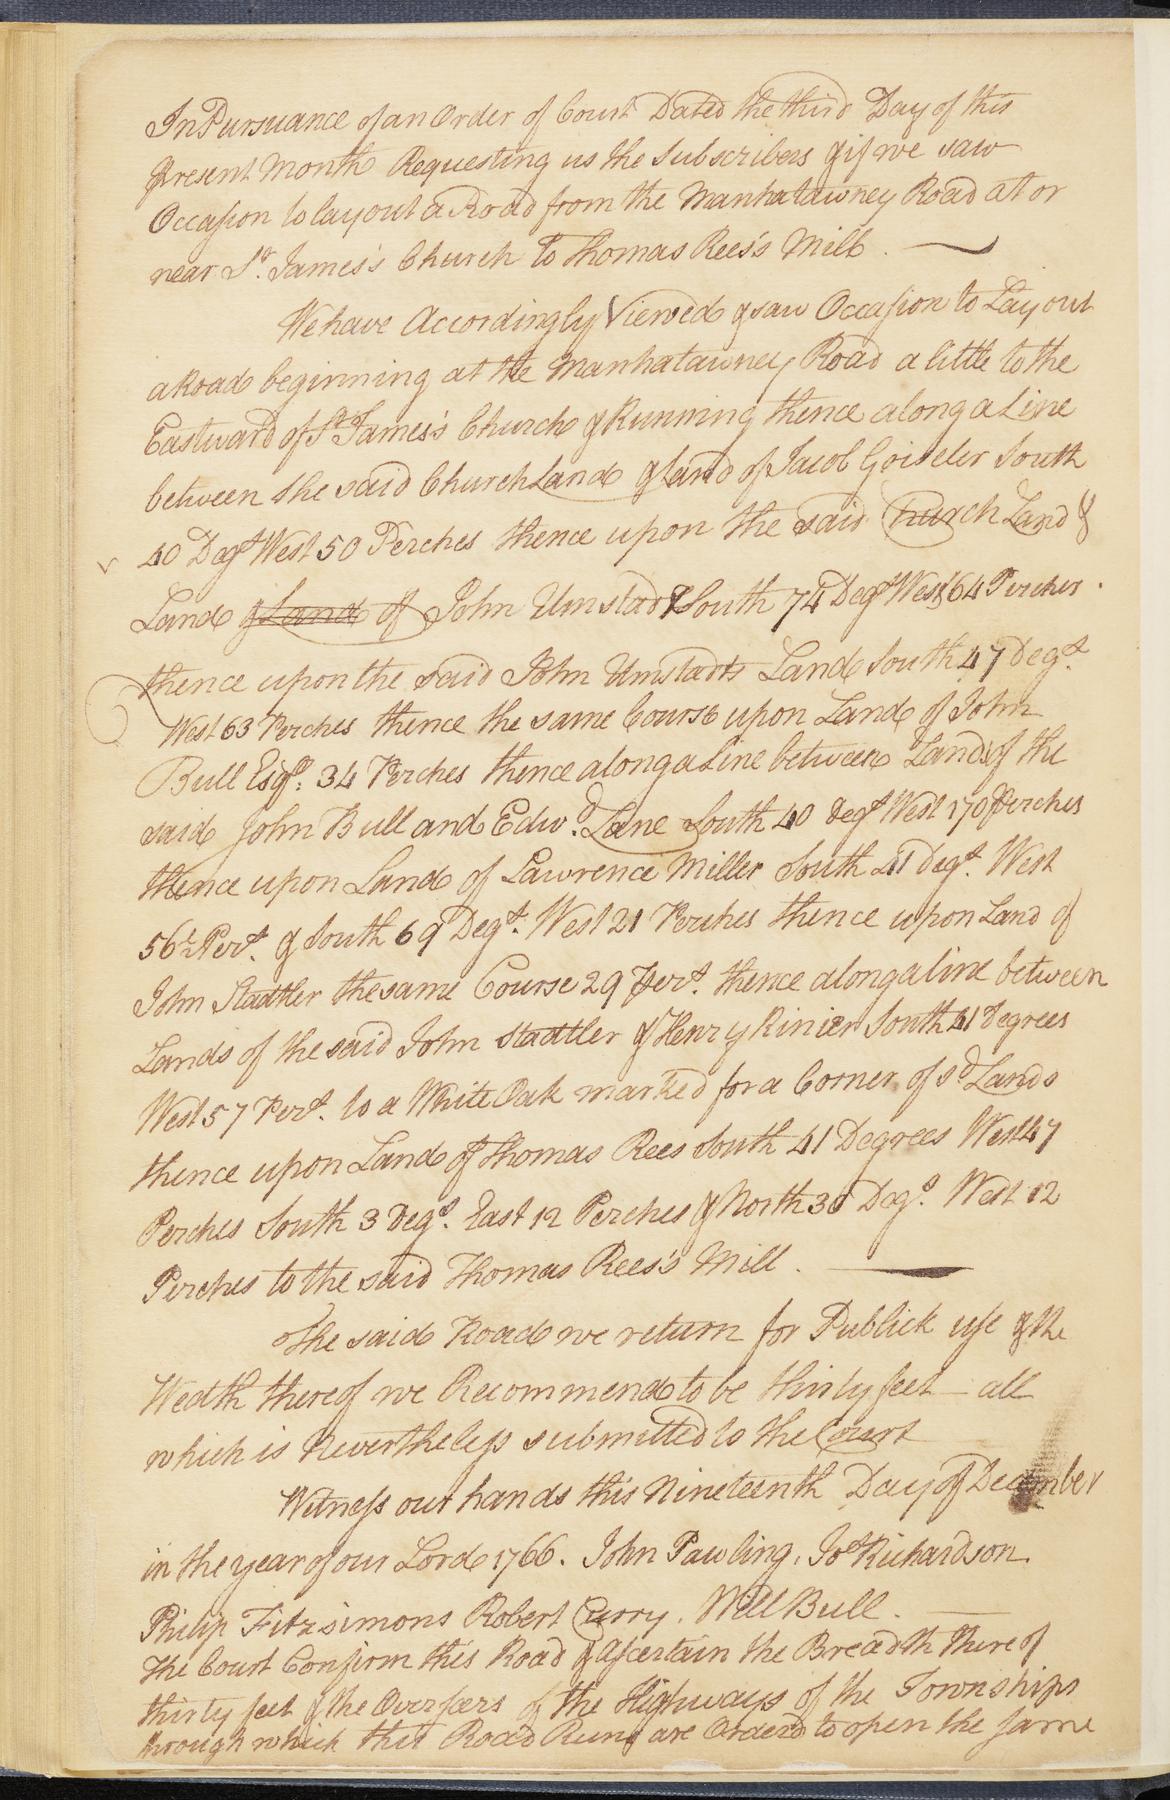 In Pursuance of an Order of Court Dated the third Day of this
Present Month Requesting us the Subscribers if we saw
Occasion to lay out a Road from the Manhatawney Road at or
near St. James's Church to Thomas Rees's Mill.
We have Accordingly Viewed & saw Occasion to Lay out
a Road beginning at the Manhatawney Road a little to the
Eastward of St. James's Church & Running thence along a Line
between the said Church Land & Land of Jacob Goiseler South
40 Degs. West 50 Perches thence upon the said Church Land &
Land & Land of John Umstad & South 74 Degs West 64 Perches
thence upon the said John Umstadts Land South 47 Degs.
West 63 Perches thence the same Course upon Land of John
Bull Esqr. 34 Perches thence along a Line between Lands of the
said John Bull and Edwd. Lane South 40 Degs West 170 Perches
thence upon Land of Lawrence Miller South 41 Degs. West
56½ Pers. & South 69 Degs. West 21 Perches thence upon Land of
John Stadtler the same Course 29 Pers. thence along a line between
Lands of the said John Stadtler & Henry Rinier South 41 Degrees
West 57 Pers. to a White Oak marked for a Corner of sd. Lands
thence upon Land of Thomas Rees South 41 Degrees West 47
Perches South 3 Degs. East 12 Perches & North 30 Degs. West 12
Perches to the said Thomas Rees's Mill.
The said Road we return for Publick use & the
Wedth thereof we Recommend to be thirty feet all
which is Nevertheless submitted to the Court
Witness our hands this Nineteenth Day of December
in the year of our Lord 1766. John Pawling, Jos. Richardson.
Philip Fitzsimons Robert Curry. Will Bull.
The Court Confirm this Road & Ascertain the Breadth there of
thirty feet & the Overseers of the Highways of the Townships
through which this Road Runs are Ordered to open the same